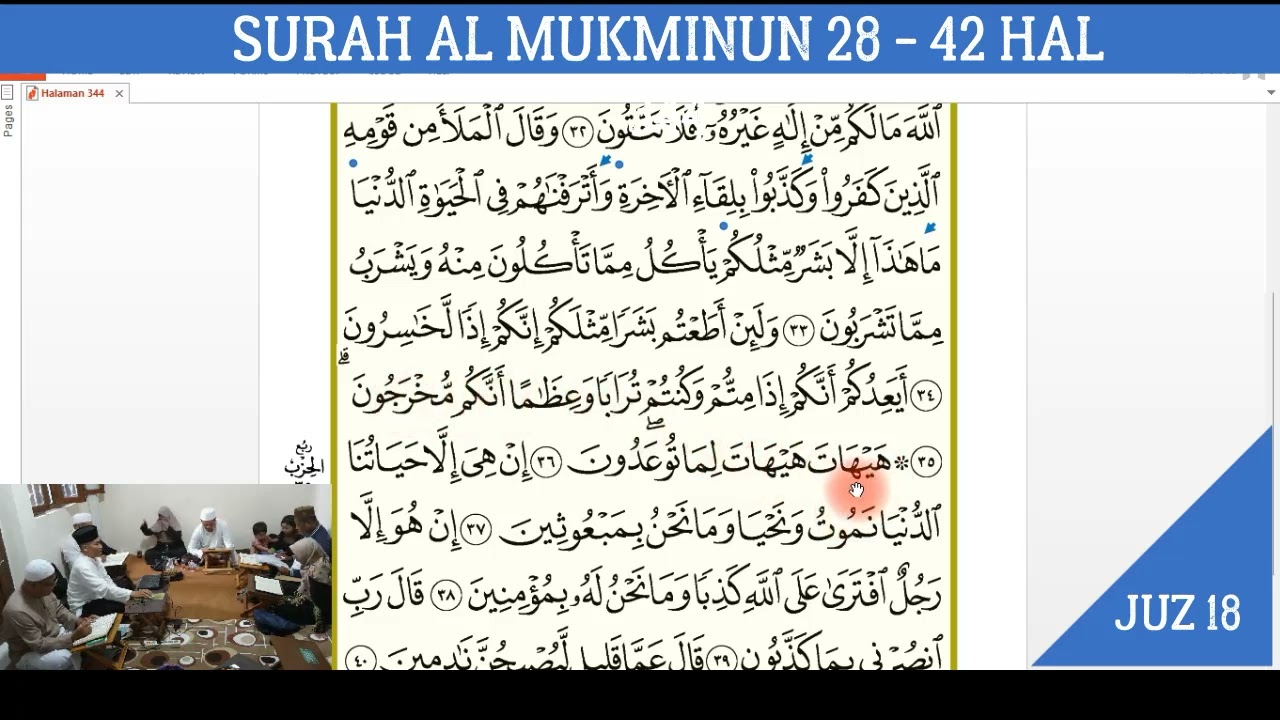 SURAH AL MUKMINUN 28 - 42 HAL
Halaman 344
Pages
ٱللَّهَ مَا لَكُم مِّنْ إِلَٰهٍ غَيْرُهُۥٓ أَفَلَا تَتَّقُونَ ٣٢ وَقَالَ ٱلْمَلَأُ مِن قَوْمِهِ
ٱلَّذِينَ كَفَرُوا۟ وَكَذَّبُوا۟ بِلِقَآءِ ٱلْأَخِرَةِ وَأَتْرَفْنَٰهُمْ فِى ٱلْحَيَوٰةِ ٱلدُّنْيَا
مَا هَٰذَآ إِلَّا بَشَرٌ مِّثْلُكُمْ يَأْكُلُ مِمَّا تَأْكُلُونَ مِنْهُ وَيَشْرَبُ
مِمَّا تَشْرَبُونَ ٣٣ وَلَئِنْ أَطَعْتُم بَشَرًا مِّثْلَكُمْ إِنَّكُمْ إِذًا لَّخَٰسِرُونَ
٣٤ أَيَعِدُكُمْ أَنَّكُمْ إِذَا مِتُّمْ وَكُنتُمْ تُرَابًا وَعِظَٰمًا أَنَّكُم مُّخْرَجُونَ ۗ
٣٥ * هَيْهَاتَ هَيْهَاتَ لِمَا تُوعَدُونَ ٣٦ إِنْ هِىَ إِلَّا حَيَاتُنَا
رُبْعُ
الْحِزْبِ
ٱلدُّنْيَا نَمُوتُ وَنَحْيَا وَمَا نَحْنُ بِمَبْعُوثِينَ ٣٧ إِنْ هُوَ إِلَّا
رَجُلٌ ٱفْتَرَىٰ عَلَى ٱللَّهِ كَذِبًا وَمَا نَحْنُ لَهُۥ بِمُؤْمِنِينَ ٣٨ قَالَ رَبِّ
ٱنصُرْنِى بِمَا كَذَّبُونِ ٣٩ قَالَ عَمَّا قَلِيلٍ لَّيُصْبِحُنَّ نَٰدِمِينَ ٤٠
JUZ 18